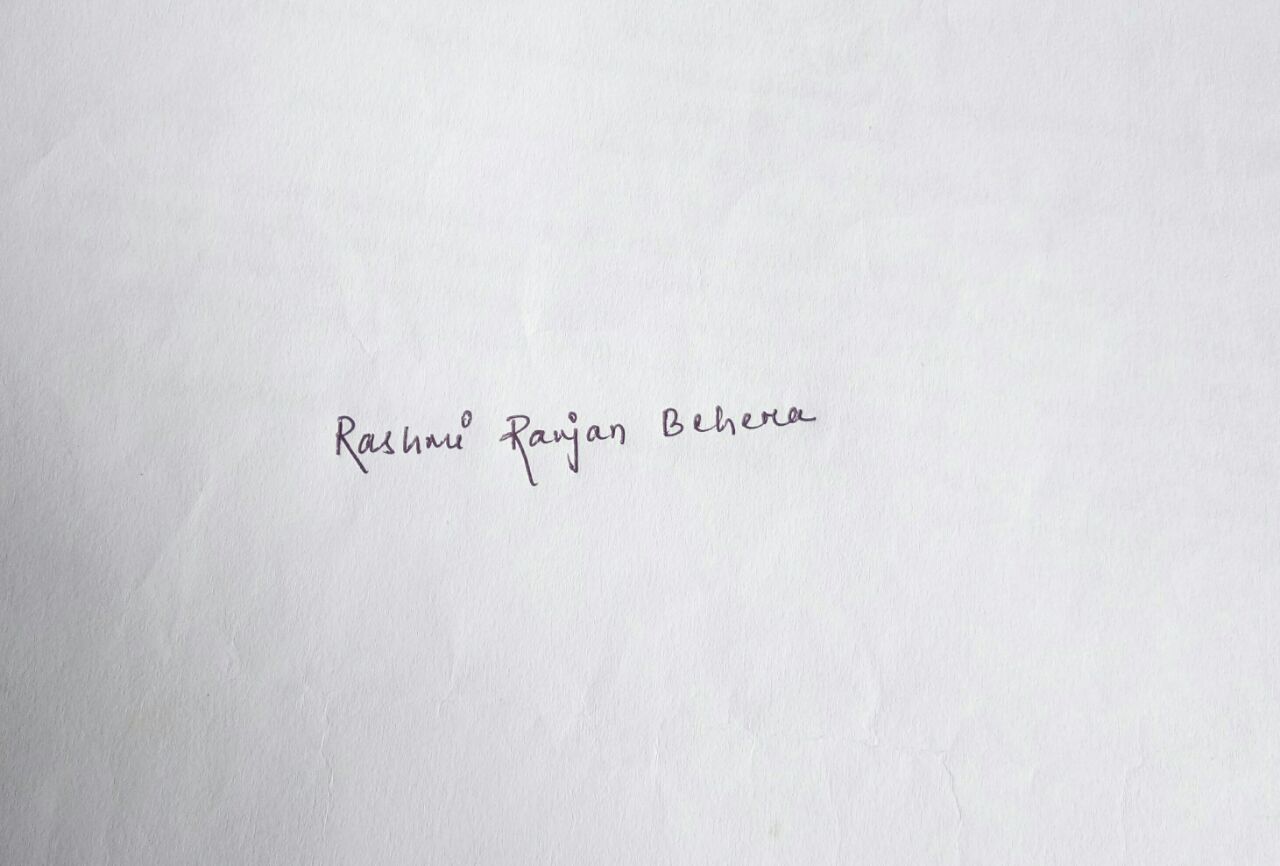 Rashmi Ranjan Behera